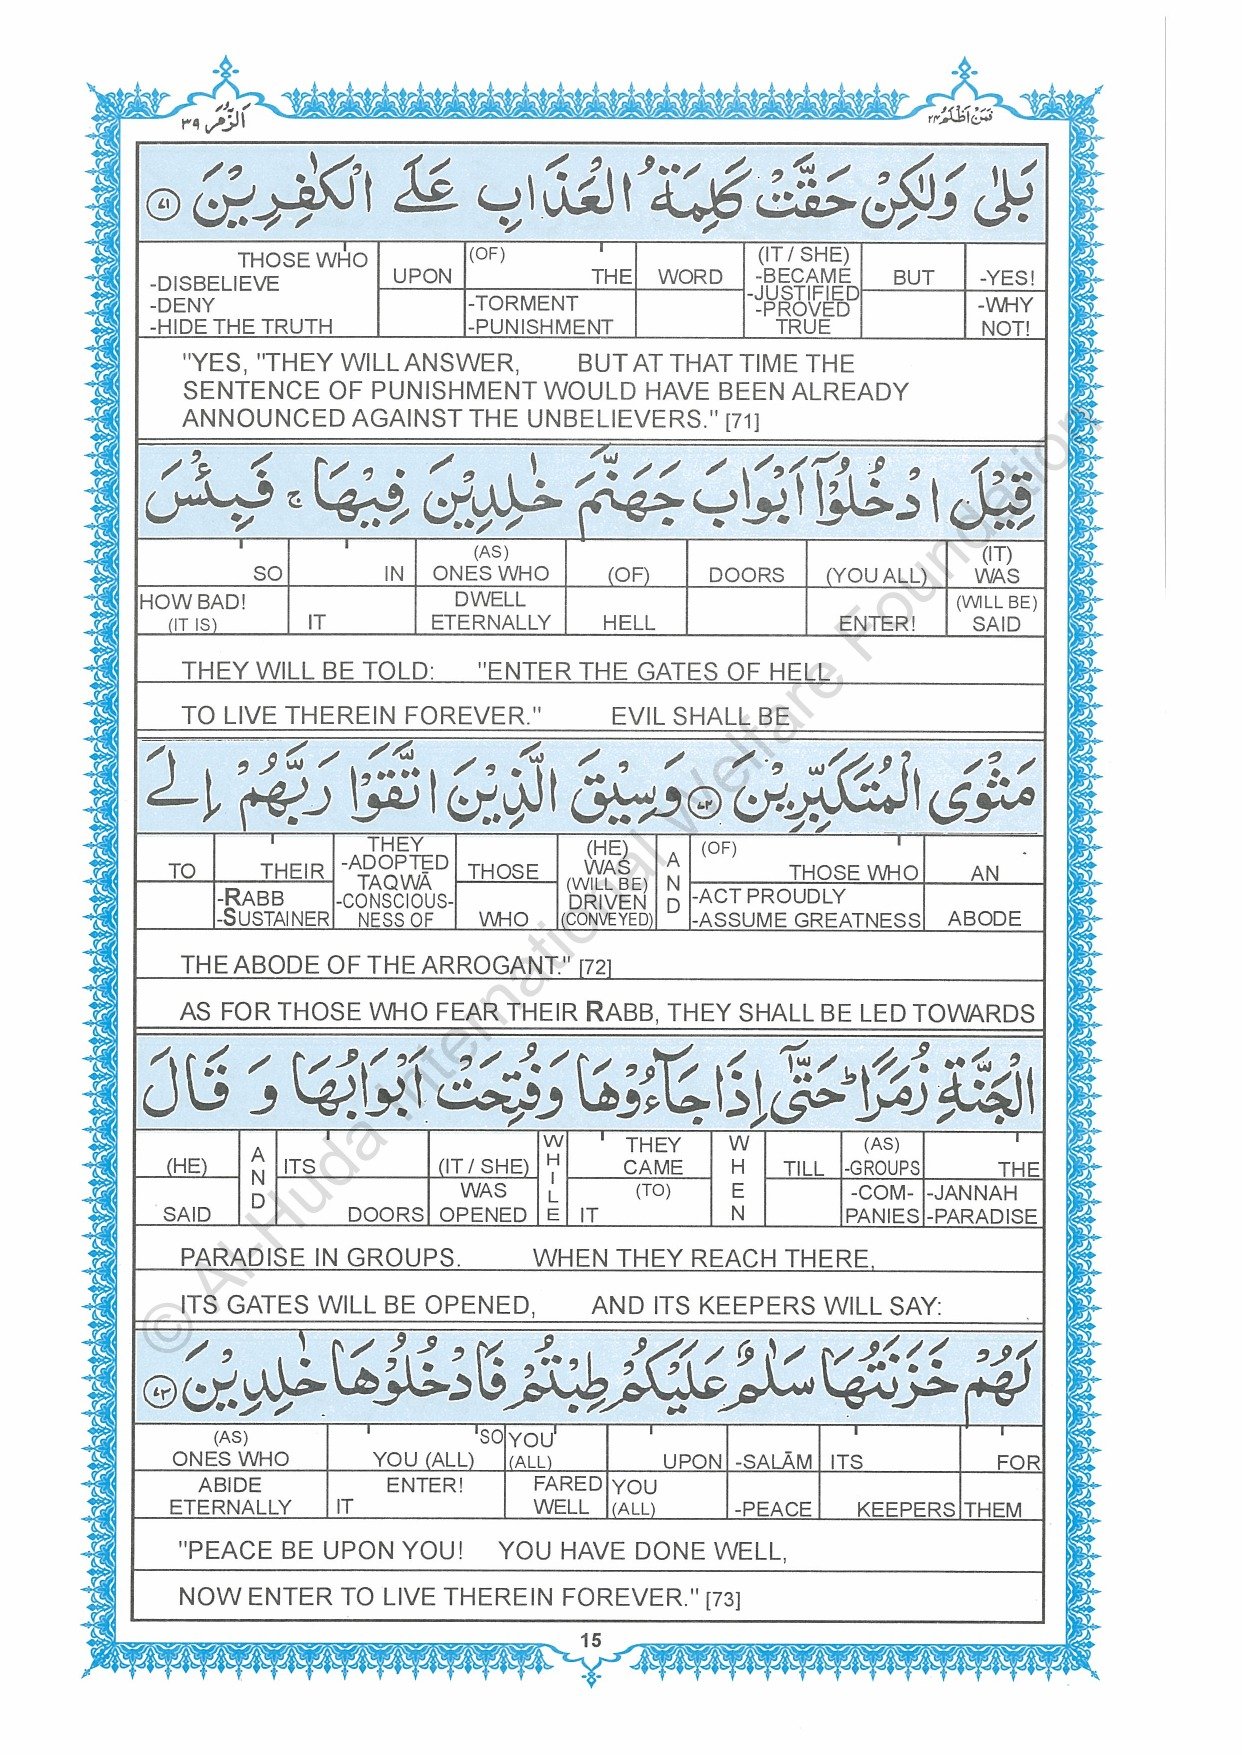 اَلزُّمَر ٣٩
فَمَنْ اَظْلَمُ ٢٤
بَلٰى وَلٰكِنْ حَقَّتْ كَلِمَةُ الْعَذَابِ عَلَى الْكٰفِرِيْنَ ﴿٧١﴾
THOSE WHO UPON (OF) THE WORD (IT / SHE) -BECAME BUT -YES!
-DISBELIEVE -DENY -HIDE THE TRUTH -TORMENT -PUNISHMENT -JUSTIFIED -PROVED TRUE -WHY NOT!
"YES, "THEY WILL ANSWER, BUT AT THAT TIME THE
SENTENCE OF PUNISHMENT WOULD HAVE BEEN ALREADY
ANNOUNCED AGAINST THE UNBELIEVERS." [71]
قِيْلَ ادْخُلُوْٓا اَبْوَابَ جَهَنَّمَ خٰلِدِيْنَ فِيْهَا ۚ فَبِئْسَ
SO IN (AS) ONES WHO (OF) DOORS (YOU ALL) (IT) WAS
HOW BAD! (IT IS) IT DWELL ETERNALLY HELL ENTER! (WILL BE) SAID
THEY WILL BE TOLD: "ENTER THE GATES OF HELL
TO LIVE THEREIN FOREVER." EVIL SHALL BE
مَثْوَى الْمُتَكَبِّرِيْنَ ﴿٧٢﴾ وَسِيْقَ الَّذِيْنَ اتَّقَوْا رَبَّهُمْ اِلَى
TO THEIR THEY -ADOPTED TAQWĀ THOSE (HE) WAS AND (OF) THOSE WHO AN
-RABB -SUSTAINER -CONSCIOUS-NESS OF WHO (WILL BE) DRIVEN (CONVEYED) -ACT PROUDLY -ASSUME GREATNESS ABODE
THE ABODE OF THE ARROGANT." [72]
AS FOR THOSE WHO FEAR THEIR RABB, THEY SHALL BE LED TOWARDS
الْجَنَّةِ زُمَرًا ؕ حَتّٰٓى اِذَا جَآءُوْهَا وَفُتِحَتْ اَبْوَابُهَا وَ قَالَ
(HE) AND ITS (IT / SHE) WHILE THEY CAME WHEN TILL (AS) -GROUPS THE
SAID DOORS WAS OPENED (TO) IT -COM-PANIES -JANNAH -PARADISE
PARADISE IN GROUPS. WHEN THEY REACH THERE,
ITS GATES WILL BE OPENED, AND ITS KEEPERS WILL SAY:
لَهُمْ خَزَنَتُهَا سَلٰمٌ عَلَيْكُمْ طِبْتُمْ فَادْخُلُوْهَا خٰلِدِيْنَ ﴿٧٣﴾
(AS) ONES WHO YOU (ALL) SO YOU (ALL) UPON -SALĀM ITS FOR
ABIDE ETERNALLY ENTER! IT FARED WELL YOU (ALL) -PEACE KEEPERS THEM
"PEACE BE UPON YOU! YOU HAVE DONE WELL,
NOW ENTER TO LIVE THEREIN FOREVER." [73]
15
© Al-Huda International Welfare Foundation